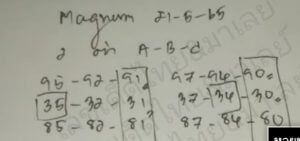 Magnum 21-5-65
2 บน A-B-C
95-92-91. 97-94-90.
35-32-31. 37-34-30.
85-82-81. 87-84-80